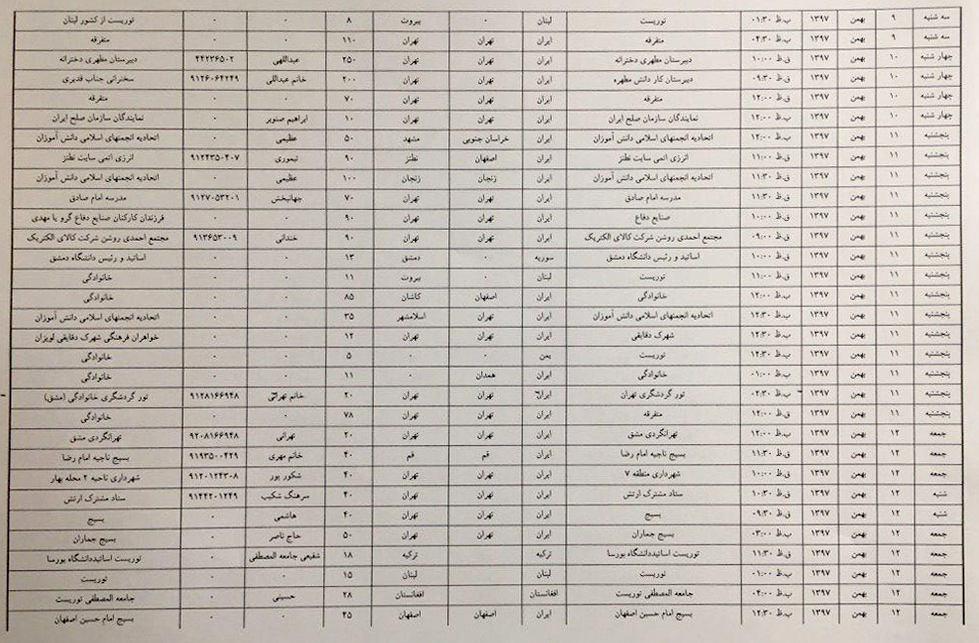 سه شنبه ۹ بهمن ۱۳۹۷ ب.ظ ۰۱:۳۰ توریست لبنان ۰ بیروت ۸ ۰ ۰ توریست از کشور لبنان
سه شنبه ۹ بهمن ۱۳۹۷ ب.ظ ۰۴:۳۰ متفرقه ایران تهران تهران ۱۱۰ ۰ ۰ متفرقه
چهار شنبه ۱۰ بهمن ۱۳۹۷ ق.ظ ۱۰:۰۰ دبیرستان مطهری دخترانه ایران تهران تهران ۲۵۰ عبداللهی ۴۴۲۳۶۵۰۲ دبیرستان مطهری دخترانه
چهار شنبه ۱۰ بهمن ۱۳۹۷ ق.ظ ۰۹:۳۰ دبیرستان کار دانش مطهره ایران تهران تهران ۲۰۰ خانم عبداللی ۹۱۲۶۰۶۲۲۴۹ سخنرانی جناب قدیری
چهار شنبه ۱۰ بهمن ۱۳۹۷ ق.ظ ۱۲:۰۰ متفرقه ایران تهران تهران ۷۰ ۰ ۰ متفرقه
چهار شنبه ۱۰ بهمن ۱۳۹۷ ق.ظ ۱۲:۰۰ نمایندگان سازمان صلح ایران ایران تهران تهران ۱۰ ابراهیم صنوبر ۰ نمایندگان سازمان صلح ایران
پنجشنبه ۱۱ بهمن ۱۳۹۷ ق.ظ ۱۲:۰۰ اتحادیه انجمنهای اسلامی دانش آموزان ایران خراسان جنوبی مشهد ۵۰ عظیمی ۰ اتحادیه انجمنهای اسلامی دانش آموزان
پنجشنبه ۱۱ بهمن ۱۳۹۷ ق.ظ ۱۱:۰۰ انرژی اتمی سایت نطنز ایران اصفهان نطنز ۹۰ تیموری ۹۱۲۴۳۵۰۴۰۷ انرژی اتمی سایت نطنز
پنجشنبه ۱۱ بهمن ۱۳۹۷ ق.ظ ۱۱:۳۰ اتحادیه انجمنهای اسلامی دانش آموزان ایران زنجان زنجان ۱۰۰ عظیمی ۰ اتحادیه انجمنهای اسلامی دانش آموزان
پنجشنبه ۱۱ بهمن ۱۳۹۷ ق.ظ ۱۱:۳۰ مدرسه امام صادق ایران تهران تهران ۷۰ جهانبخش ۹۱۲۷۰۵۳۲۰۱ مدرسه امام صادق
پنجشنبه ۱۱ بهمن ۱۳۹۷ ق.ظ ۱۰:۰۰ صنایع دفاع ایران تهران تهران ۹۰ ۰ ۰ فرزندان کارکنان صنایع دفاع گرو یا مهدی
پنجشنبه ۱۱ بهمن ۱۳۹۷ ق.ظ ۰۹:۰۰ مجتمع احمدی روشن شرکت کالای الکتریک ایران تهران تهران ۹۰ خندانی ۹۱۳۶۵۳۰۰۹ مجتمع احمدی روشن شرکت کالای الکتریک
پنجشنبه ۱۱ بهمن ۱۳۹۷ ق.ظ ۱۰:۰۰ اساتید و رئیس دانشگاه دمشق سوریه ۰ دمشق ۱۳ ۰ ۰ اساتید و رئیس دانشگاه دمشق
پنجشنبه ۱۱ بهمن ۱۳۹۷ ق.ظ ۱۱:۰۰ توریست لبنان ۰ بیروت ۱۱ ۰ ۰ خانوادگی
پنجشنبه ۱۱ بهمن ۱۳۹۷ ب.ظ ۱۲:۰۰ خانوادگی ایران اصفهان کاشان ۸۵ ۰ ۰ خانوادگی
پنجشنبه ۱۱ بهمن ۱۳۹۷ ب.ظ ۱۲:۳۰ اتحادیه انجمنهای اسلامی دانش آموزان ایران تهران اسلامشهر ۳۵ ۰ ۰ اتحادیه انجمنهای اسلامی دانش آموزان
پنجشنبه ۱۱ بهمن ۱۳۹۷ ب.ظ ۱۲:۳۰ شهرک دقایقی ایران تهران تهران ۱۲ ۰ ۰ خواهران فرهنگی شهرک دقایقی لویزان
پنجشنبه ۱۱ بهمن ۱۳۹۷ ب.ظ ۱۲:۳۰ توریست یمن ۰ ۰ ۵ ۰ ۰ خانوادگی
پنجشنبه ۱۱ بهمن ۱۳۹۷ ب.ظ ۰۱:۰۰ خانوادگی ایران همدان ۰ ۱۱ ۰ ۰ خانوادگی
پنجشنبه ۱۱ بهمن ۱۳۹۷ ب.ظ ۰۲:۳۰ تور گردشگری تهران ایران تهران تهران ۲۰ خانم تهرانی ۹۱۲۸۱۶۶۹۴۸ تور گردشگری خانوادگی (مشق)
پنجشنبه ۱۱ بهمن ۱۳۹۷ ق.ظ ۱۲:۰۰ متفرقه ایران تهران تهران ۷۸ ۰ ۰ خانوادگی
جمعه ۱۲ بهمن ۱۳۹۷ ب.ظ ۱۲:۰۰ تهرانگردی مشق ایران تهران تهران ۲۰ تهرانی ۹۲۰۸۱۶۶۹۴۸ تهرانگردی مشق
جمعه ۱۲ بهمن ۱۳۹۷ ق.ظ ۱۱:۳۰ بسیج ناحیه امام رضا ایران قم قم ۴۰ خانم مهری ۹۱۹۳۵۰۰۴۲۹ بسیج ناحیه امام رضا
جمعه ۱۲ بهمن ۱۳۹۷ ق.ظ ۱۰:۰۰ شهرداری منطقه ۷ ایران تهران تهران ۴۰ شکور پور ۹۱۲۰۱۲۴۳۰۸ شهرداری ناحیه ۲ محله بهار
شنبه ۱۲ بهمن ۱۳۹۷ ق.ظ ۱۰:۳۰ ستاد مشترک ارتش ایران تهران تهران ۴۰ سرهنگ شکیب ۹۱۴۴۲۰۱۲۴۹ ستاد مشترک ارتش
شنبه ۱۲ بهمن ۱۳۹۷ ق.ظ ۰۹:۳۰ بسیج ایران تهران تهران ۴۰ هاشمی ۰ بسیج
جمعه ۱۲ بهمن ۱۳۹۷ ب.ظ ۰۳:۰۰ بسیج جماران ایران تهران تهران ۵۰ حاج ناصر ۰ بسیج جماران
جمعه ۱۲ بهمن ۱۳۹۷ ق.ظ ۱۱:۳۰ توریست اساتیددانشگاه بورسا ترکیه ۰ ترکیه ۱۸ شفیعی جامعه المصطفی ۰ توریست اساتیددانشگاه بورسا
جمعه ۱۲ بهمن ۱۳۹۷ ب.ظ ۰۱:۰۰ توریست لبنان ۰ لبنان ۱۵ ۰ ۰ توریست
جمعه ۱۲ بهمن ۱۳۹۷ ب.ظ ۰۴:۰۰ جامعه المصطفی توریست افغانستان ۰ افغانستان ۲۸ حسینی ۰ جامعه المصطفی توریست
جمعه ۱۲ بهمن ۱۳۹۷ ب.ظ ۱۲:۳۰ بسیج امام حسین اصفهان ایران اصفهان اصفهان ۴۵ ۰ ۰ بسیج امام حسین اصفهان